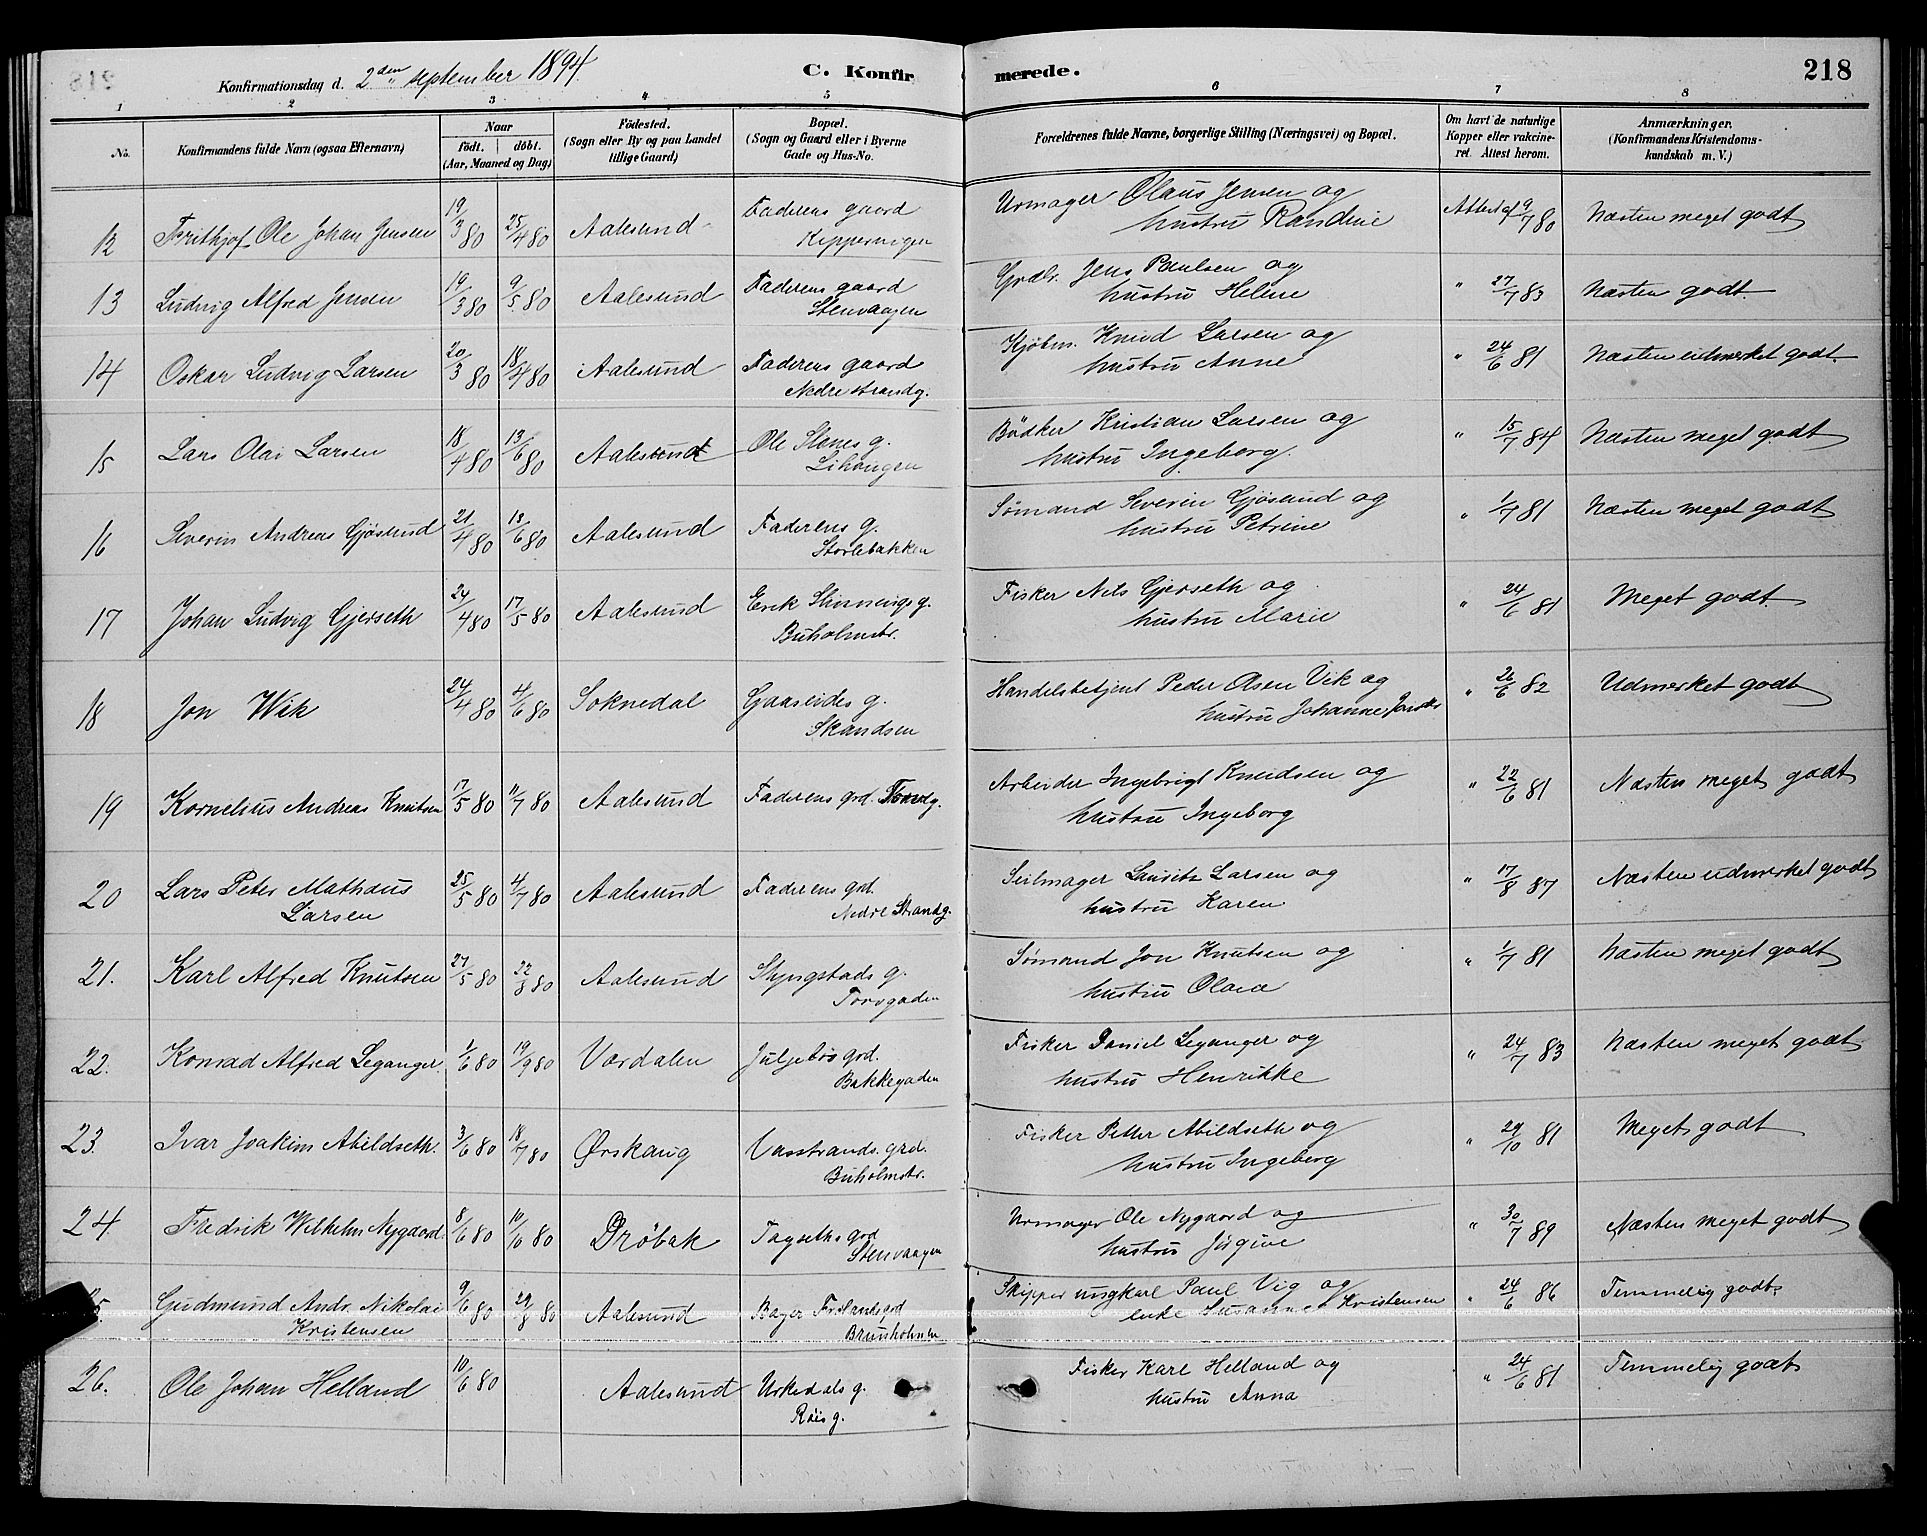 Konfirmationsdag d. 2den september 1894.
C. Konfirmerede.
218
1 2 3 4 5 6 7 8
No.
Konfirmandens fulde Navn (ogsaa Efternavn)
Naar
födt. döbt.
(Aar, Maaned og Dag)
Födested.
(Sogn eller By og paa Landet
tillige Gaard)
Bopæl.
(Sogn og Gaard eller i Byerne
Gade og Hus-No.
Forældrenes fulde Navne, borgerlige Stilling (Næringsvei) og Bopæl.
Om havt de naturlige
Kopper eller vakcine-
ret. Attest herom.
Anmærkninger.
(Konfirmandens Kristendoms-
kundskab m. V.)
12 Frithjof Ole Johan Jensen 19/3 80 25/4 80 Aalesund Faderens gaard Urmager Olaus Jensen og Attest af 9/7 80 Næsten meget godt
Kippervigen hustru Randine
13 Ludvig Alfred Jensen 19/3 80 9/5 80 Aalesund Faderens gaard Jens Paulsen og " 27/7 83 Næsten godt.
Stenvaagen hustru Helene
14 Oskar Ludvig Larsen 20/3 80 18/4 80 Aalesund Faderens gaard Kjøbm. Knud Larsen og " 24/6 81 Næsten udmerket godt
Nedre strandg. hustru Anne
15 Lars Olai Larsen 18/4 80 13/6 80 Aalesund Ole Stenes g. Bödker Kristian Larsen og " 15/7 84 Næsten meget godt
Lihaugen hustru Ingeborg.
16 Severin Andreas Gjøsund 21/4 80 13/6 80 Aalesund Faderens g. Sømand Severin Gjøsund og " 1/7 81 Næsten meget godt
Storlebakken hustru Petrine
17 Johan Ludvig Gjerseth 24/4 80 17/5 80 Aalesund Erik g. Fisker Nils Gjerseth og " 24/6 81 Meget godt.
Buholmstr. hustru Marie
18 Jon Wik 24/4 80 4/6 80 Soknedal Gaaseides g. Handelsbetjent Peder Olsen Vik og " 26/6 82 Udmerket godt
Skandsen hustru Johanne
19 Kornelius Andreas Knutsen 17/5 80 11/7 80 Aalesund Faderens grd. Ingebrigt Knudsen og " 22/6 81 Næsten meget godt
Arbeider hustru Ingeborg
20 Lars Peter Mathæus 25/5 80 4/7 80 Aalesund Faderens grd. Seilmager Lauritz Larsen og " 17/8 87 Næsten udmerket godt
Larsen Nedre Strandg. hustru Karen
21. Karl Alfred Knutsen 27/5 80 22/8 80 Aalesund Slyngstads g. Sømand Jon Knutsen og " 1/7 81 Næsten meget godt
Torvgaden hustru Olava
22. Konrad Alfred Leganger. 1/6 80 19/9 80 Værdalen Juljebøs grd. Fisker Daniel Leganger og " 24/7 83 Næsten meget godt
Bakkegaden hustru Henrikke
23. Ivar Joakim Abildseth. 3/6 80 18/7 80 Ørskaug Vasstrands. grd. Fisker Petter Abildseth og " 29/10 81 Meget godt
Buholmstr. hustru Ingeborg
24. Fredrik Wilhelm Nygaard. 8/6 80 10/6 80 Drøbak grd Urmager Ole Nygaard og " 30/7 89 Næsten meget godt
Stenvaagen hustru Jørgine
Gudmund Andr. Nikolai 9/6 80 29/8 80 Aalesund Bager Skipper ungkarl Paul Vig og " 24/6 86 Temmelig godt.
Kristensen Brunholmen enke Susanne Kristensen
26. Ole Johan Helland 10/6 80 Aalesund Urkedals g. Fisker Karl Helland og " 24/6 81 Temmelig godt
Røis g. hustru Anna